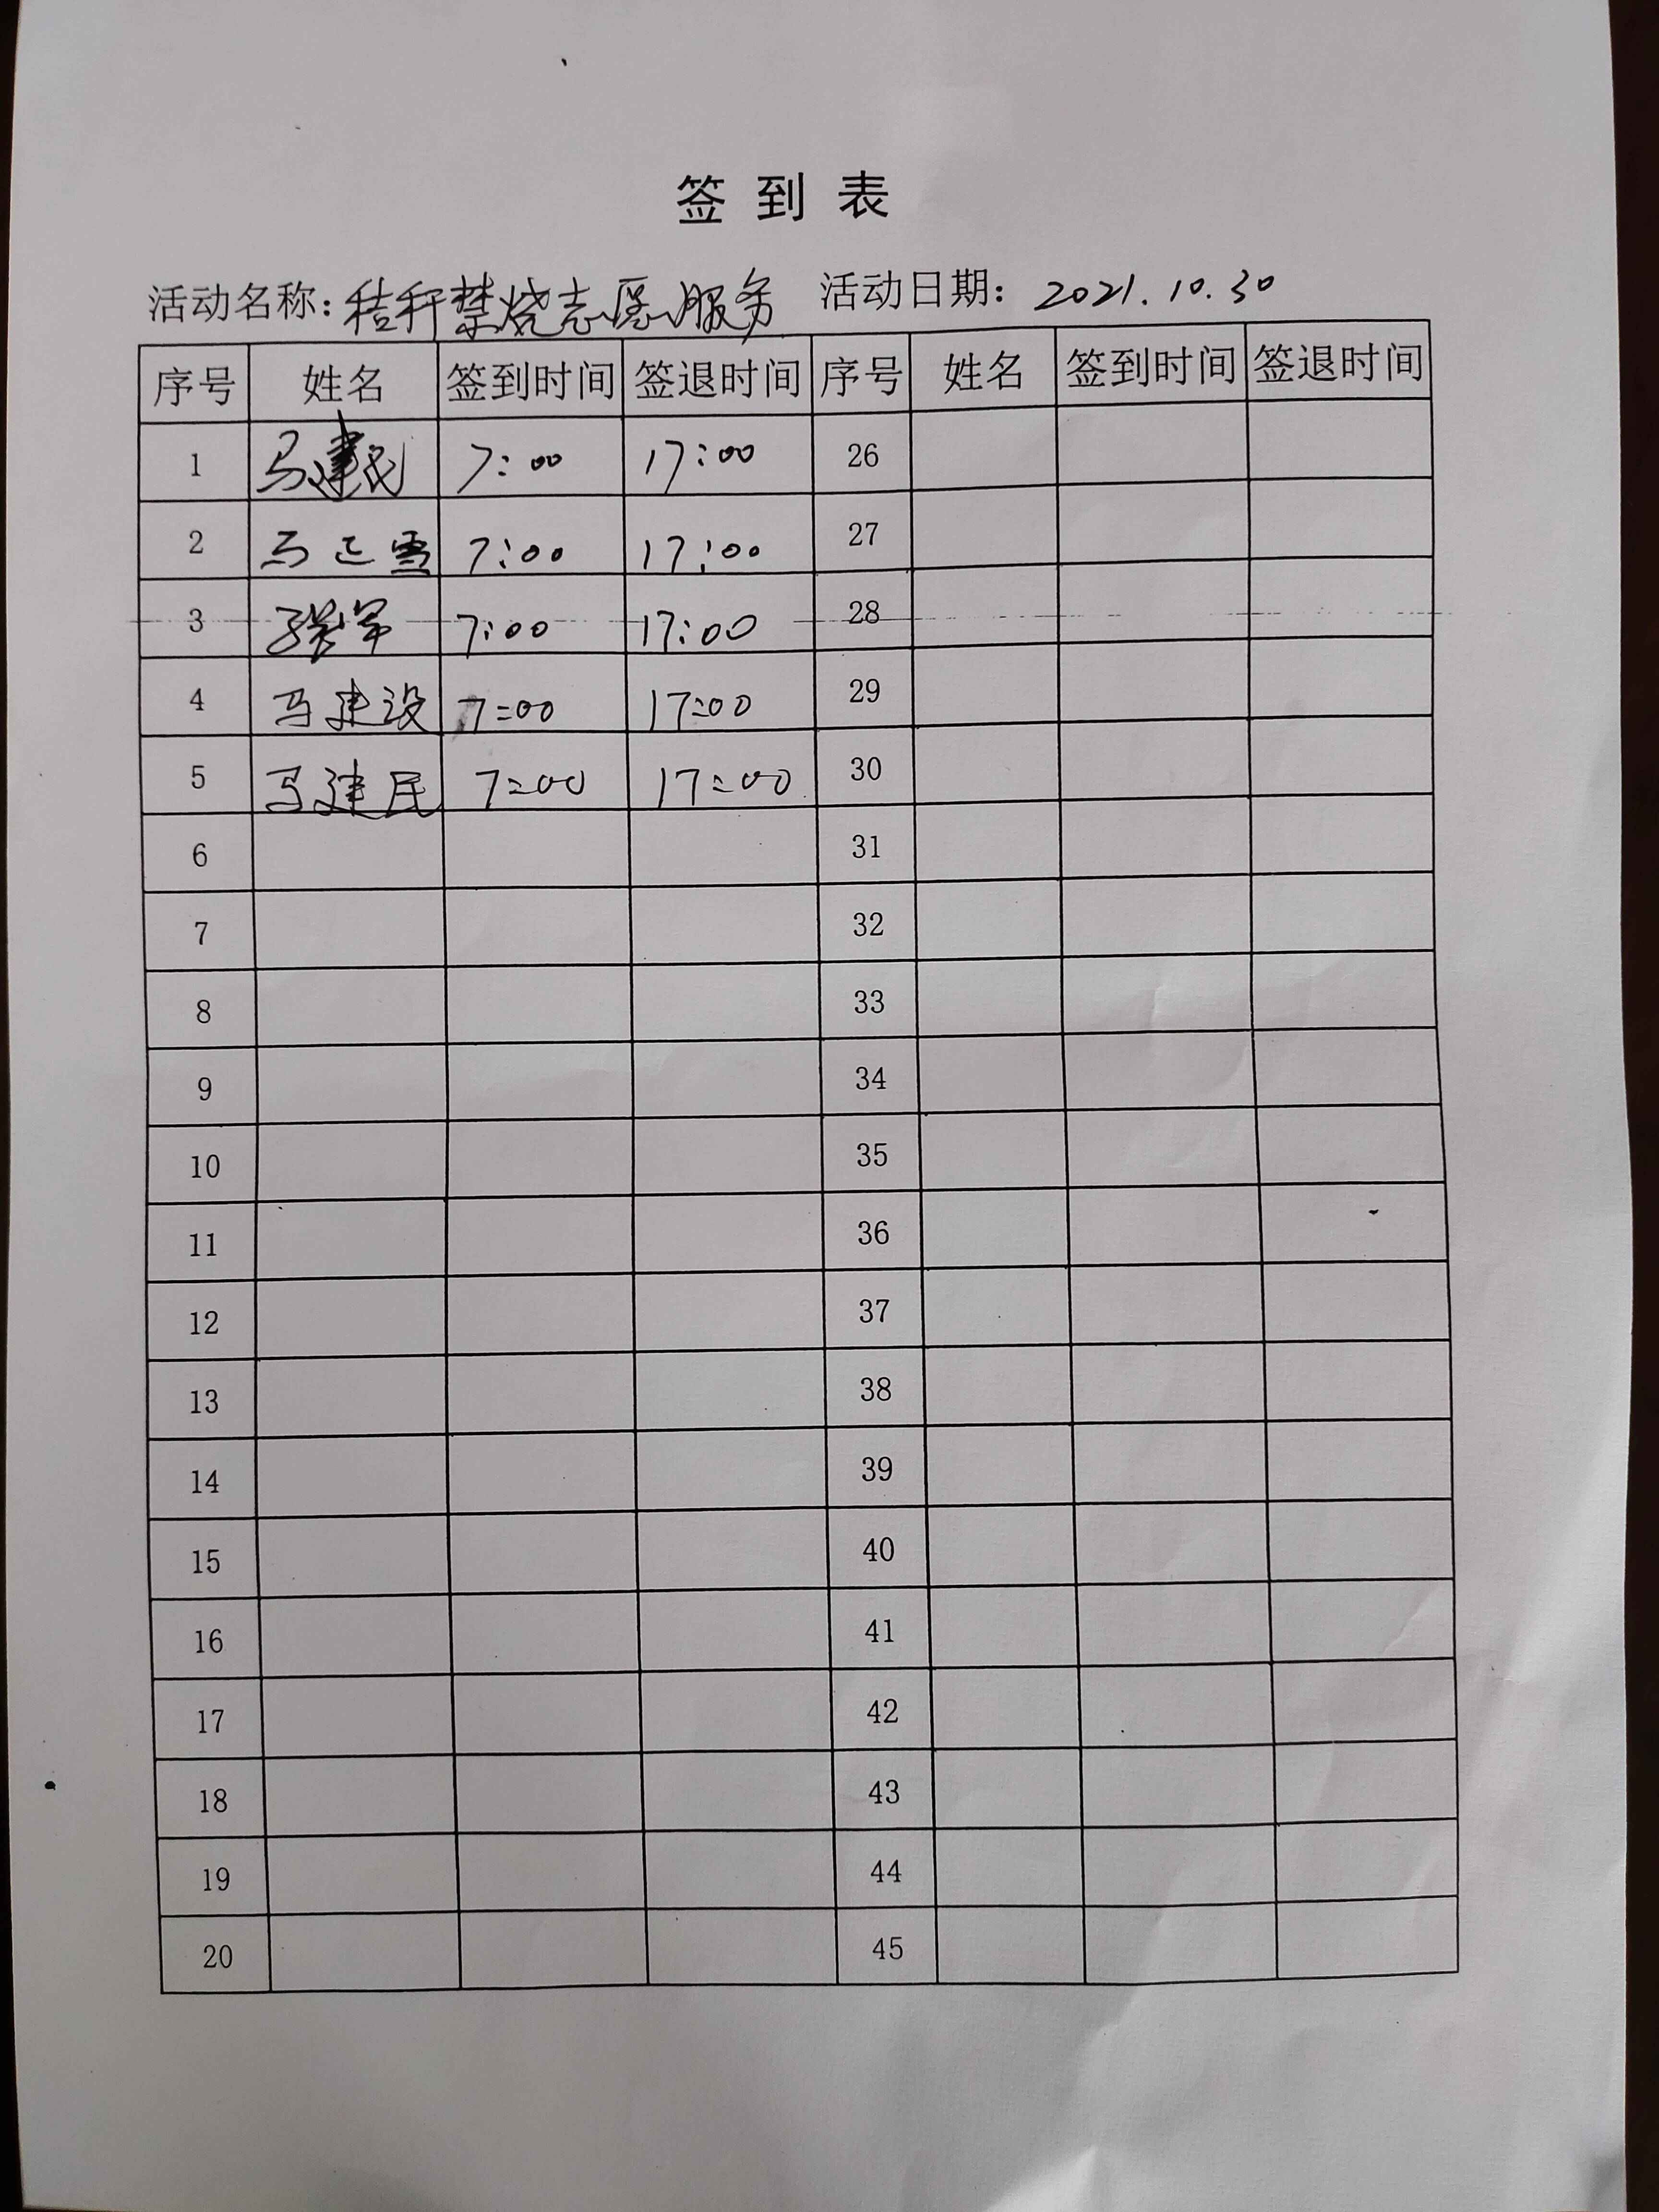 签到表
活动名称:秸秆禁烧志愿服务 活动日期: 2021.10.30
序号 姓名 签到时间 签退时间 序号 姓名 签到时间 签退时间
1 马建民 7:00 17:00 26
2 马正雪 7:00 17:00 27
3 张军 7:00 17:00 28
4 马建设 7:00 17:00 29
5 马建民 7:00 17:00 30
6 31
7 32
8 33
9 34
10 35
11 36
12 37
13 38
14 39
15 40
16 41
17 42
18 43
19 44
20 45